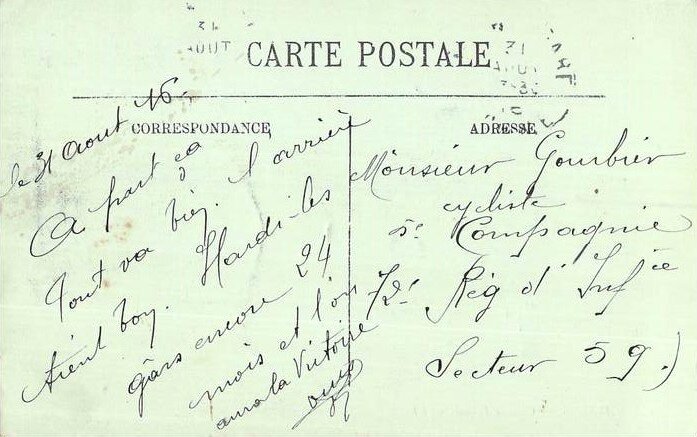 31
AOUT
CARTE POSTALE
31
AOUT
CORRESPONDANCE
ADRESSE
le 31 Aout 16.
A part ça
Tout va bien. L'arrière
tient bon. Hardi les
gârs encore 24
mois et l'on
aura la Victoire
Monsieur Gourbier
cycliste
5e Compagnie
72e Rég d'Infée
Secteur 59.)